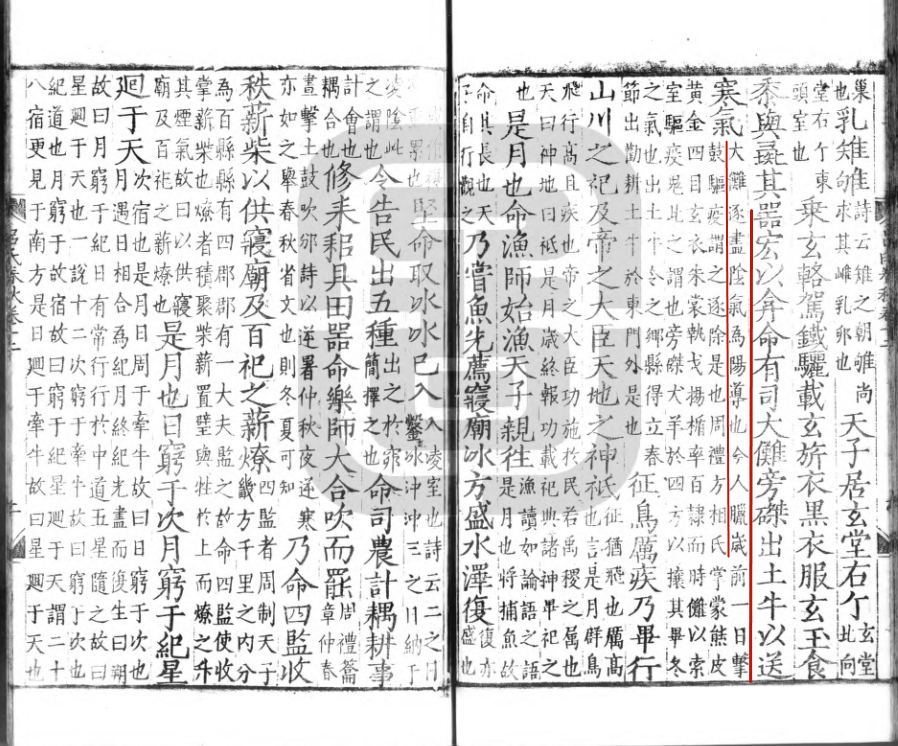 巢也乳雉雊詩云雉之朝雊尚求其雌乳卵也天子居玄堂右个玄堂北向
堂右个東頭室也乘玄輅駕鐵驪載玄旂衣黑衣服玄玉食
黍與彘其器宏以弇命有司大儺旁磔出土牛以送
寒氣大儺逐盡陰氣為陽導也今人臘歲前一日擊鼓驅疫謂之逐除是也周禮方相氏掌蒙熊皮
黃金四目玄衣朱裳執戈揚楯率百隸而時儺以索室驅疫鬼此之謂也旁磔犬羊於四方以攘其畢冬
之氣也出土牛令之鄉縣得立春節出勸耕土牛於東門外是也征鳥厲疾乃畢行
山川之祀及帝之大臣天地之神祇征猶飛也厲高也言是月群鳥
飛行高且疾也帝之大臣功施於民若禹稷之屬也天曰神地曰祇是月歲終報功載祀典諸神畢祀之
也是月也命漁師始漁天子親往漁讀如論語之語是月也將捕魚故
命其長也天子自行觀之乃嘗魚先薦寢廟冰方盛水澤復復亦盛也
堅命取冰冰已入入凌室也詩云二之日鑿冰沖沖三之日納于
凌陰此之謂也令告民出五種出之於窌簡擇之也命司農計耦耕事
計會也耦合也修耒耜具田器命樂師大合吹而罷周禮籥章仲春
晝擊土鼓吹邠詩以逆暑仲秋夜逆寒亦如之舉春秋省文也則冬夏可知乃命四監收
秩薪柴以供寢廟及百祀之薪燎四監者周制天子畿方千里之內分
為百縣縣有四郡郡有一大夫監之故命四監使收掌薪柴也燎者積聚柴薪置璧與牲於上而燎之升
其煙氣故曰以供寢廟及百祀之薪燎也是月也日窮于次月窮于紀星
迴于天次宿也是月日周于牽牛故曰日窮于次也月遇日相合為紀月終紀光盡而復生曰朔
故曰月窮于紀日有常行行於中道五星隨之故曰星迴于天也一說十二次窮于牽牛故曰窮于次也
紀道也月窮于故宿故曰窮于紀星迴于天謂二十八宿更見于南方是日迴于牽牛故曰星迴于天也